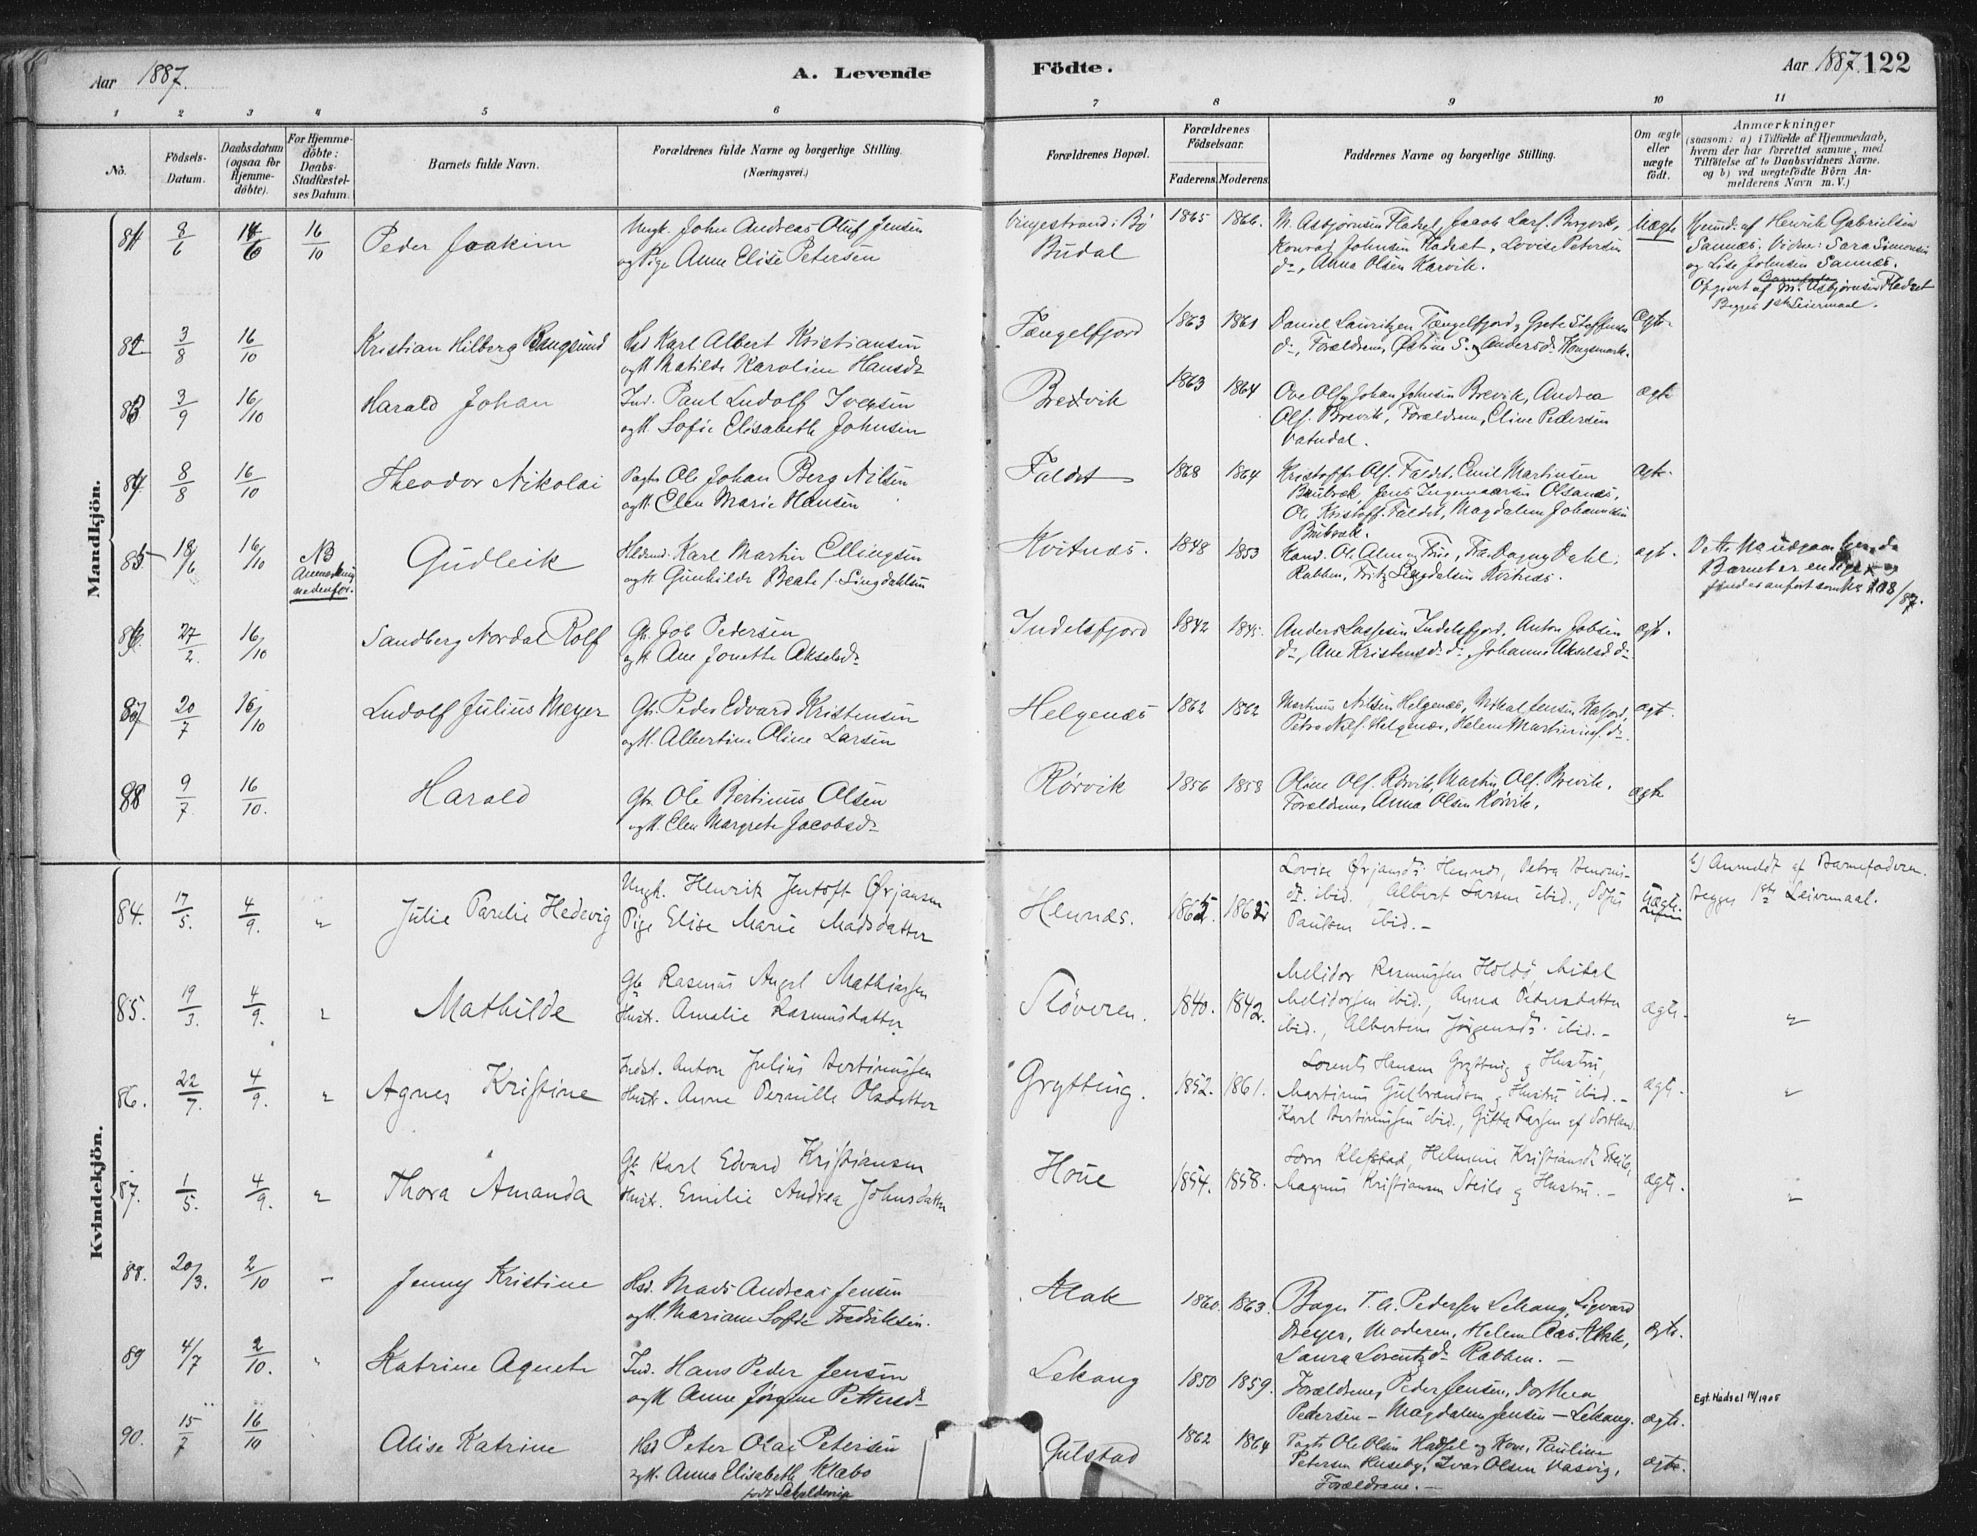 Aar 1887.
A. Levende
Födte.
Aar 1887. 122
1 2 3 4 5 6 7 8 9 10 11
No.
Födsels-
Datum.
Daabsdatum
(ogsaa for
Hjemme-
döbte).
For Hjemme-
döbte:
Daabs-
Stadfæstel-
ses Datum.
Barnets fulde Navn.
Forældrenes fulde Navne og borgerlige Stilling.
(Næringsvei.)
Forældrenes Bopæl.
Forældrenes
Födselsaar.
Faderens. Moderens.
Faddernes Navne og borgerlige Stilling.
Om ægte
eller
uægte
födt.
Anmærkninger
(saasom: a) i Tilfælde af Hjemmedaab,
hvem der har forrettet samme, med
Tilföielse af to Daabsvidners Navne.
og b) ved uægtefödte Börn An-
melderens Navn m. V.)
Mandkjön.
81 8/6 16/10 Peder Joakim
Ungk. John Andreas Oluf Jensen
og Pige Anna Elise Petersen
Vingestrand i Bø
Budal
1865 1866.
M. Asbjørnsen Fladset, Jacob Larf.
Konrad Johnsen Fladset, Lovise Petersen
do, Anna Olsen Karvik.
Uægte
Hjemd. af Henrik Gabrielsen
Sannæs. Vidner: Sara Simonsen
og Lise Johnsen Sannæs.
Opgivet af M. Asbjørnsen Fladset
Begges 1ste Leiermaal.
82 3/8 16/10 Kristian Hilberg Bangsund
Hsd Karl Albert Kristiansen
og H Matilde Karoline Hansdr
Tængelfjord
1863 1861
Daniel Lauritzen Tængelfjord, Grete Steffensen
do, Forældrene, Østine S. Andersdr Kongsmark.
Ægte.
83 3/9 16/10 Harald Johan
Ind. Paul Ludolf Iversen
og H Sofie Elisabeth Johnsen
Bredvik
1863 1864
Ove Olf, Johan Johnsen Brevik, Andrea
Olf. Brevik, Forældrene, Eline Pedersen
Vatndal.
ægte
84 8/8 16/10 Theodor Nikolai
Pagts Ole Johan Berg Nilsen
og H. Elen Marie Hansen
Faldet
1868 1864
Kristoffer Olf. Faldet, Emil Martinsen
Jens Ingemaarsen Olsanæs,
Ole Kristoff. Faldet, Magdalene Johannesen
ægte.
85 18/6 16/10
NB
Anmerkning
nedenfor.
Gudleik
Karl Martin Ellingsen
og H Gunhilde Beate f. Lingdahlsen
Kvitnæs.
1848 1853
Kand. Ol. Alm og Frue, Frk. Dagny Dahl,
Rabben, Fritz Kvitnæs.
ægt.
86 27/2. 16/10 Sandberg Nordal Rolf
Gb. Job Pedersen
og H Ane Jonette Akselsdr
Indelsfjord
1842 1845.
Anders Lassesen Indelsfjord, Anton Jobsen
do, Ane Kristensdr do, Johanne Akselsd. do
ægt.
87 20/7 16/10 Ludolf Julius Meyer
Gb. Peder Edvard Kristensen
og H. Albertine Oline Larsen
Helgenæs
1862 1862
Martinus Nilsen Helgenæs, Mikal Jensen
Petra Nilf. Helgenæs, Helene Martinusf. do.
ægt.
88 9/7 16/10. Harald
Gbr. Ole Bertinus Olsen
og H. Elen Margrete Jacobsdr
Rörvik
1856 1858
Oline Olf. Rörvik, Martin Olf. Brevik.
Forældrene, Anna Olsen Rörvik.
ægte
Kvindekjön.
84. 17/5. 4/9. „ Julie Parelie Hedevig
Ungk. Henrik Jentoft Ørjansen
Pige Elise Marie Madsdatter
Hennæs.
Lovise Ørjansdr Hennes, Petra
dr. ibid., Albert Larsen ibid.,
Paulsen ibid.—
Uægte.
Anmeldt af Barnefaderen.
Begges 1ste Leiermaal.
85. 19/3. 4/9. „ Mathilde
Gb Rasmus Angel Mathiassen
Hust. Amalie Rasmusdatter
Sløveren.
1840. 1842.
Melidor Rasmussen Holdø, Mikal
Melidorsen ibid., Anna Pedersdatter
ibid., Albertine Jørgensdr. ibid.—
ægte. „
86. 22/7. 4/9. „ Agnes Kristine
Indst. Anton Julius Bertinussen
Hust. Anne Pernille Olsdatter
Grytting.
1852. 1861.
Lorents Hansen Grytting og Hustru,
Martinus Gulbrandsen og Hustru ibid.—
Karl Bertinussen ibid., Gitta Larsen af Sortland
ægte. „
87. 1/5. 4/9. „ Thora Amanda
Gb Karl Edvard Kristiansen
Hust. Emilie Andrea Johnsdatter
Houe
1854. 1858.
Klefstad, Helmine Kristiansdr Steilo,
Magnus Kristiansen Steilo og Hustru.—
ægte. „
88. 20/3. 2/10 — Jenny Kristine
Hsd. Mads Andreas Jensen
og H. Mariane Sofie Fredriksen.
Klak
1860. 1863.
Bager T. A. Pedersen Lekang, Sigvard
Beyer, Moderen, Helene Aas. Klak,
Laura Lorentzdr Rabben.—
ægte.
89 4/7 2/10. Katrine Agnete
Ind. Hans Peder Jensen
og H Anne Jørgine Pettersdr
Lekang
1850 1859.
Forældrene, Peder Jensen, Dorthea
Pedersen — Magdalene Jensen — Lekang.
ægte.
Egt. Hadsel 14/1905
90. 15/7 16/10 Alise Katrine
Hsd Peter Olai Petersen
og H. Anna Elisabeth Klæbo
Gulstad
1862 1864
Pagts Ole Olsen Hadsel og Kone, Pauline
Petersen Huseby, Ivar Olsen Vasvig,
Forældrene.—
ægte.